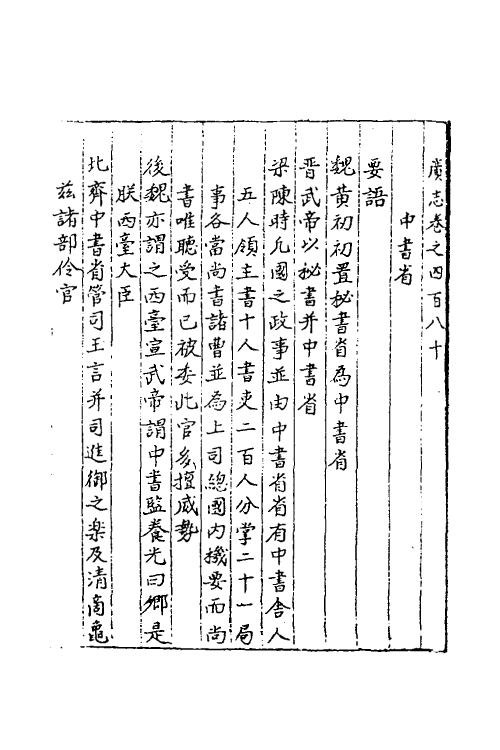 廣志卷之四百八十
中書省
要語
魏黃初初置秘書省為中書省
晉武帝以秘書并中書省
梁陳時凢國之政事並由中書省省有中書舎人
五人領主書十人書吏二百人分掌二十一局
事各當尚書諸曹並為上司總國内機要而尚
書唯聽受而已被委此官多擅威勢
後魏亦謂之西臺宣武帝謂中書監養光曰卿是
朕西臺大臣
北齊中書省管司王言并司進御之楽及清商龜
茲諸部伶官